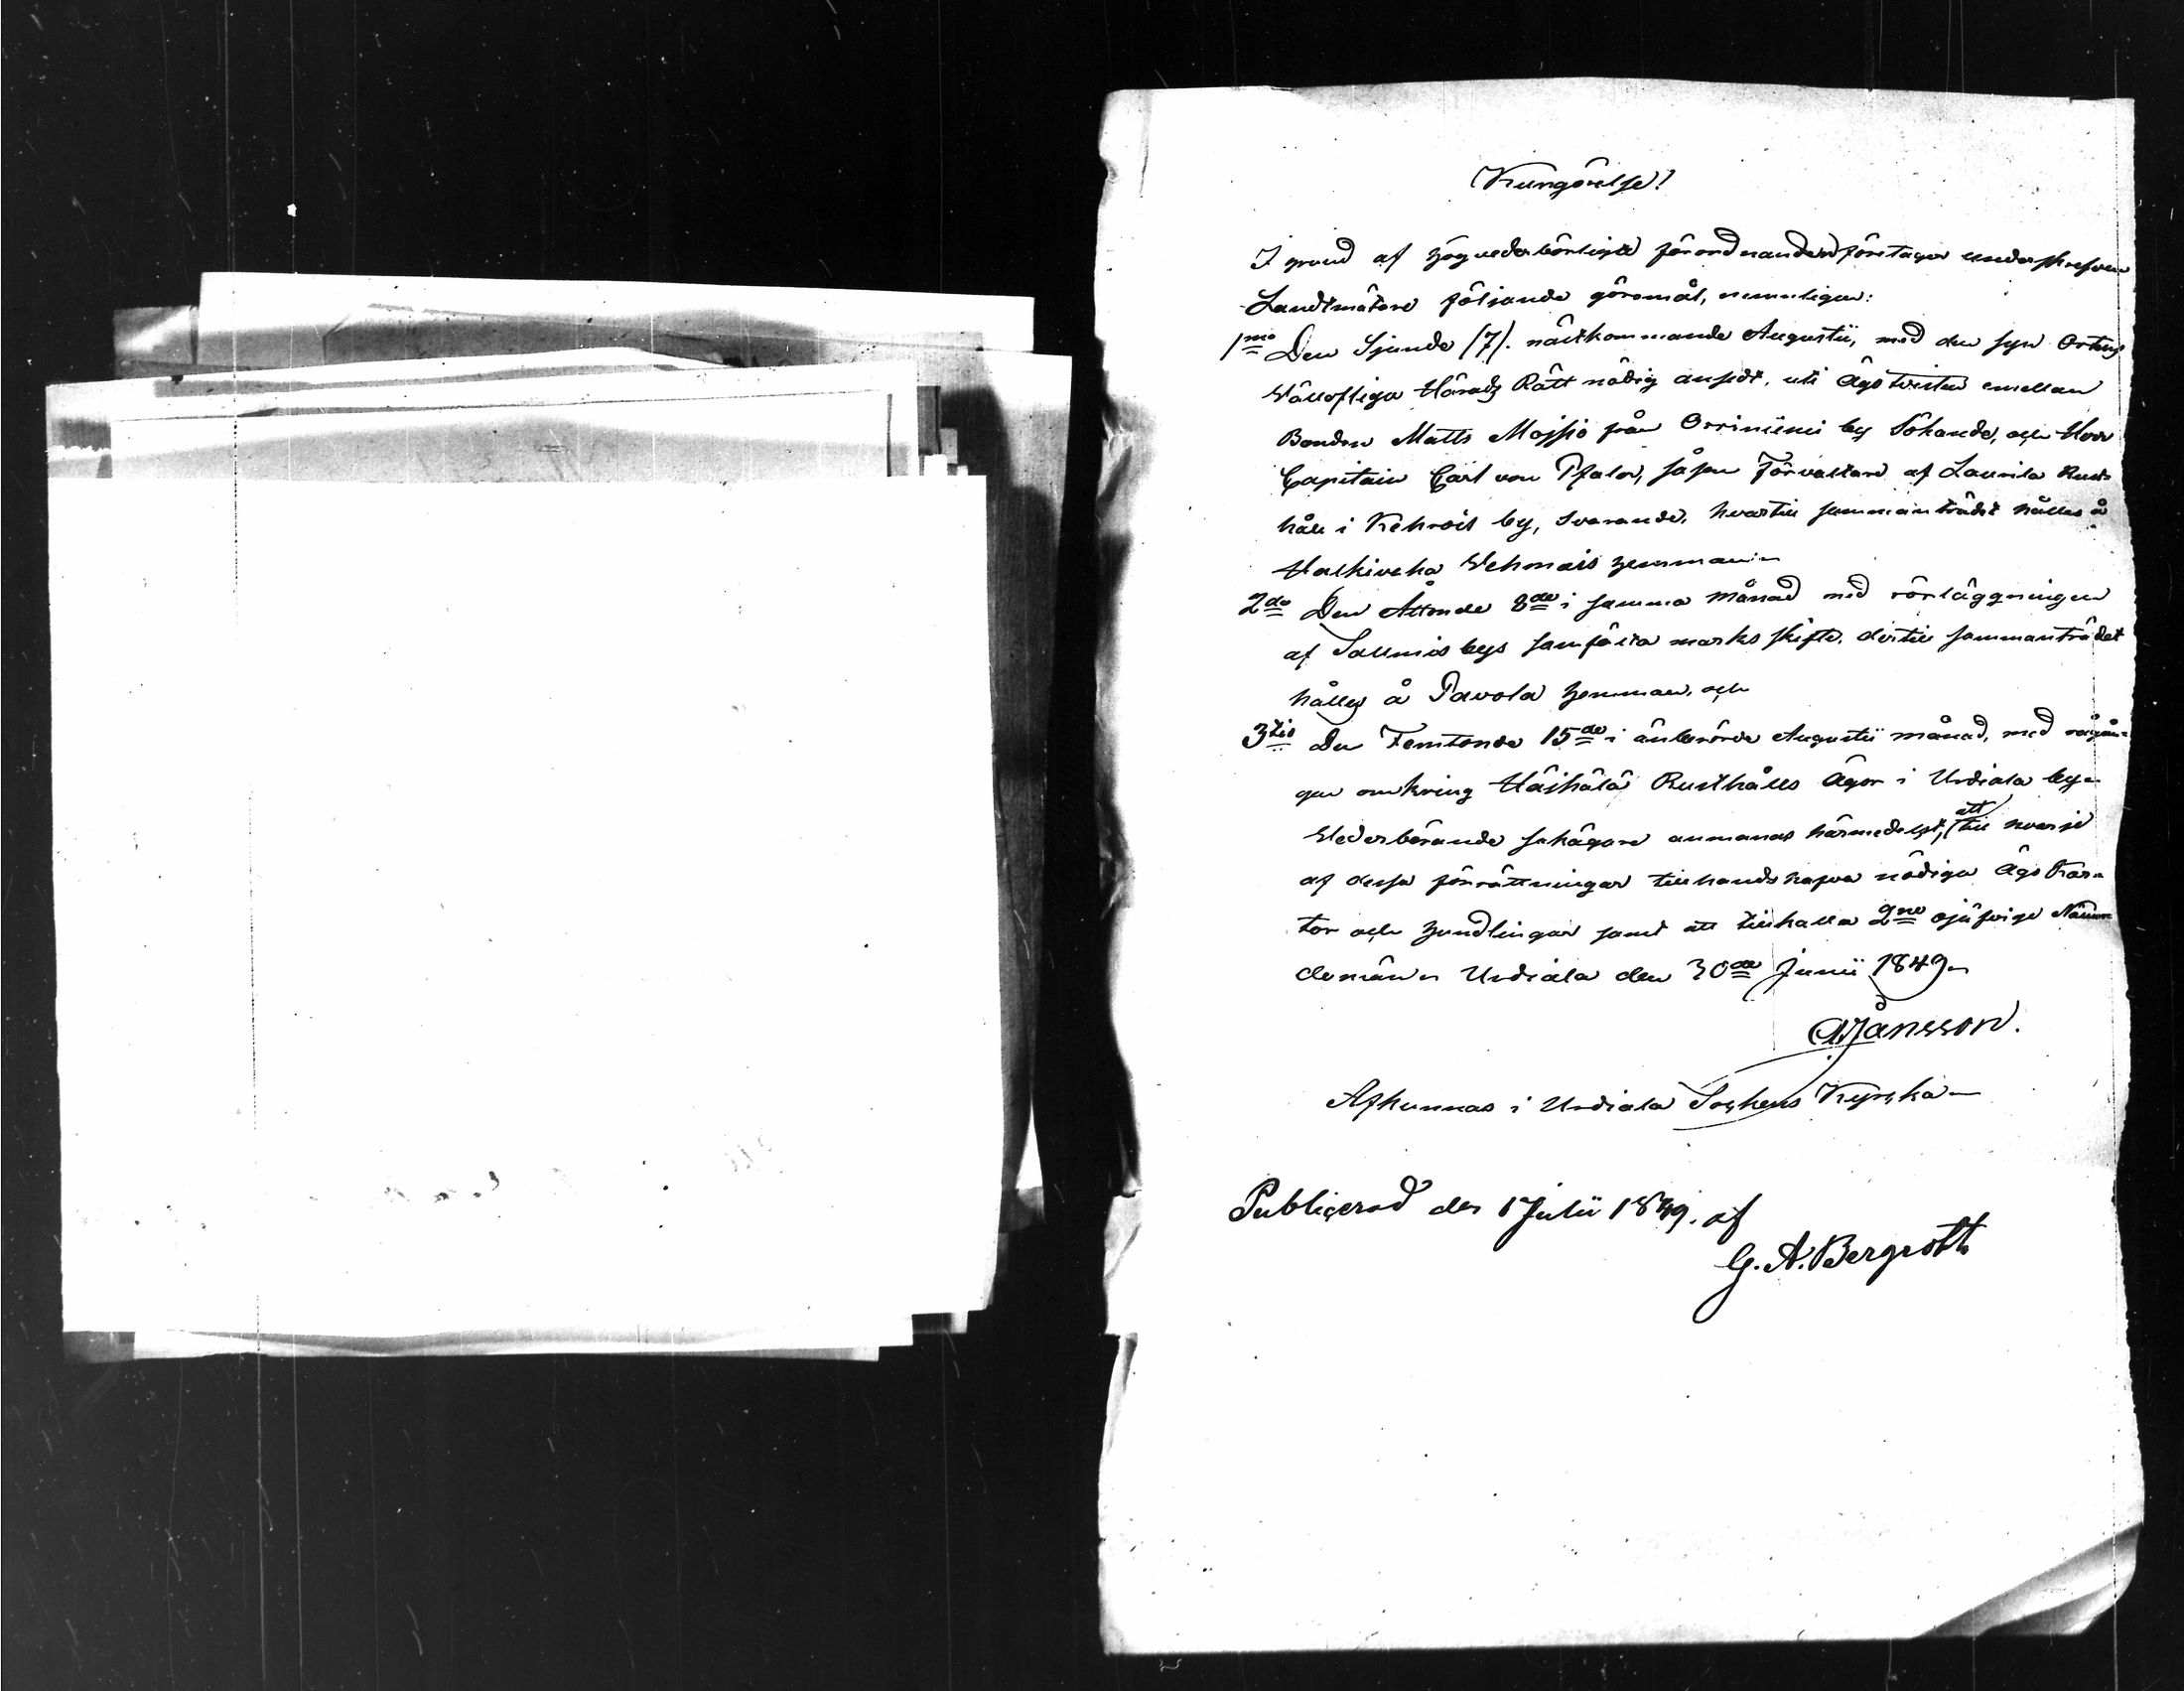 Kungörelse!
I grund af högvederbörligt förordnande företager underskrefven
Landtmätare följande göromål, nemnligen:
1mo Den Sjunde (7). nästkommande Augustii, med den syn Ortens
Vällofliga Härads Rätt nödig ansedt, uti Ägotvisten emellan
Bonden Matts Mojsio från Orriniemi by Sökande, och Herr
Capitain Carl von Pfaler, såsom Förvaltare af Laurila Rust-
håll i Kehrois by, Svarande, hvartill sammanträdet hålles å
Halkivaha Vehmais hemman.
2do Den Åttonde 8de i samma månad med rörläggningen
af Salmis bys samfälta marks skifte, dertill sammanträdet
hålles å Pavola hemman, och
3tio Den Femtonde 15de i änberörde Augustii månad, med rågån-
gen omkring Häihälä Rusthålls Ägor i Urdiala by.
Vederbörande sakägare anmanas härmedelst, att till hvarje
af dessa förrättningar tillhandshafva nödiga Ägo Kar-
tor och handlingar samt att tillkalla 2ne ojäfvige Nämn
demän. Urdiala den 30de Junii 1849.
Jansson.
Afkunnas i Urdiala Sockens Kyrcka
Publicerad den 1 Julii 1849. af
G. A. Bergroth